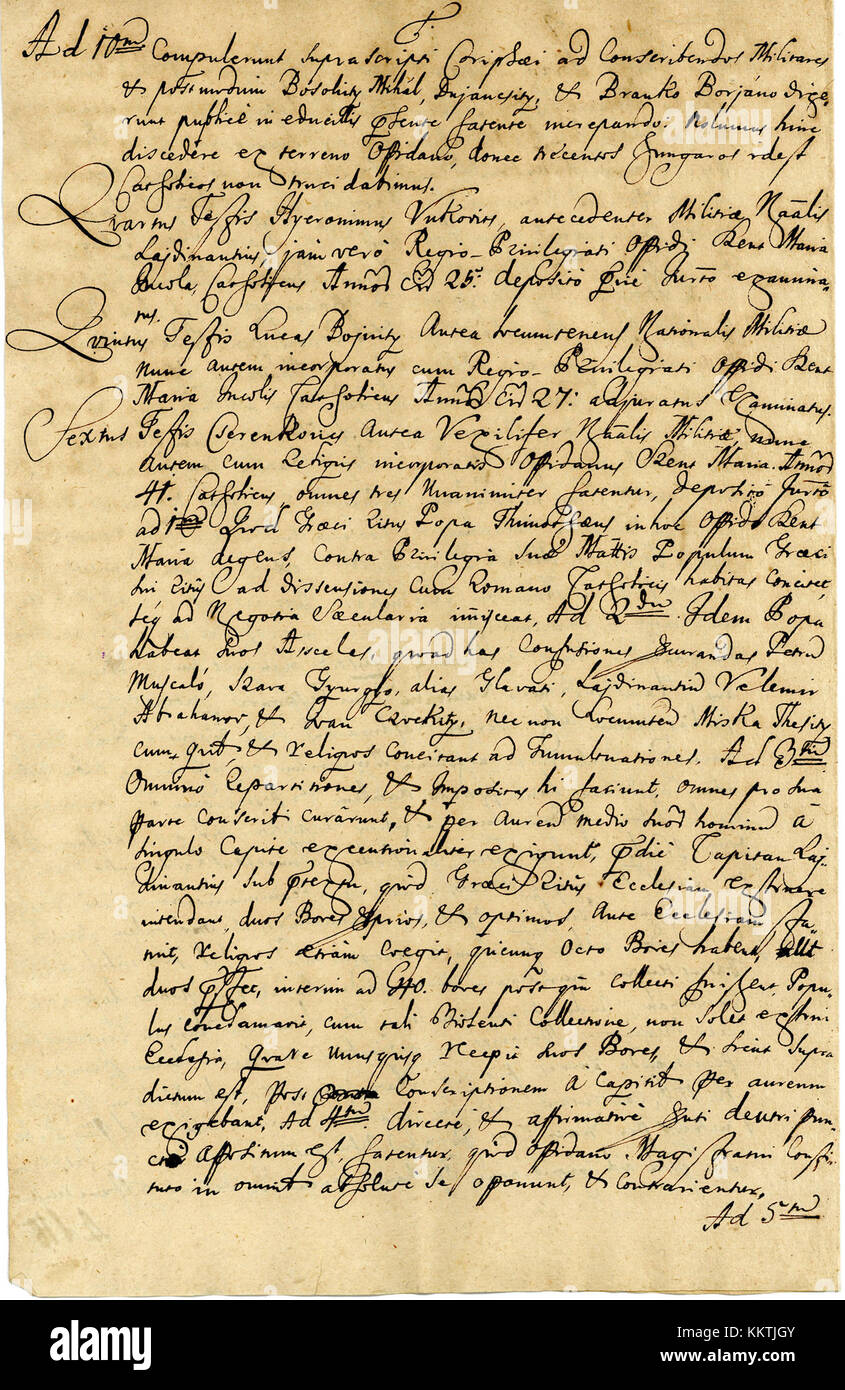 Ad 10mo Compulerunt supra scripti Coriphæi ad Conscribendos Militares
& postmodum Bosolity Mihál, Dujancsity, & Branko Borjáno dixe-
runt publicè in educillis pſente fatente increpando: Nolumus hinc
discedere ex terreno Oppidano, donec trecentos Hungaros
Catholicos non trucidabimus.
Quartus Testis Hyeronimus Vukovics, antecedenter Militiæ Naãlis
Lajdinantius, jam verò Regio-Privilegiati Oppidi Szent Maria
Incola, Catholicus Annoõ Cir 25. deposito Jurto examina-
tus.
Quintus Testis Lucas Bojnity Antea Locumtenens Nationalis Militiæ
nunc autem incorporatus cum Regio-Privilegiati Oppidi Szent
Maria Incolis Catholicus Cir 27: adjuratus Examinatus.
Sextus Testis Cserenkovics Antea Vexilifer Naãlis Militiæ, nunc
autem cum reliquis incorporatis Oppidanus Szent Maria. Annoõ
41. Catholicus, omnes tres Unanimiter fatentur, deposito Jurto
ad 1mo Quod Græci Ritus Popa Thimothæus in hoc Oppido Szent
Maria degens, Contra Privilegia Suæ Mattis Populum Græci
sui ritus ad dissensiones cum Romano Catholicis habitas concitet,
seq ad Negotia Sæcularia imisceat, Ad 2do Idem Popa
habeat suos Asseclas, quoad has Confusiones Petrum
Muscaló, Szava Gyurgyo, alias Glavati, Lajdinantium Velemir
Abrahamov, & Ivan nec non Locumten Miska Thesity
cum & reliquos concitant ad Tumultuationes. Ad 3tium
Omninò repartitiones, & Impositas hi faciunt, omnes pro sua
parte conscribi curârunt, & per aureum medio suor hominum à
singulo Capite executionaliter exigunt, pdic Capitan Laj-
dinantius sub ptextu, quod Græci Ritus Ecclesiam exstruere
intendant, duos Boves proprios, & optimos, Ante Ecclesiam sta-
tuit, reliquos etiam coegit, quicunq Octo Boves habent,
duos interim ad 40. boves postquam collecti fuissent, Popu-
lus conclamavit, cum tali Violenti Collectione, non solet exstrui
Ecclesia, Quare Unusquisq recepit suos Boves, & sicut supra
dictum est, Post Conscriptionem à Capite per aureum
exigebant, Ad 4tum directè, & affirmativè puti deutri pun-
cto Appositum est, fatentur, quod Oppidano Magistratui Consti-
tuto in omnibus absolute se oponunt, & Contrarientur,
Ad 5tum
alamy
alamy
Image ID: KKTJGY
www.alamy.com